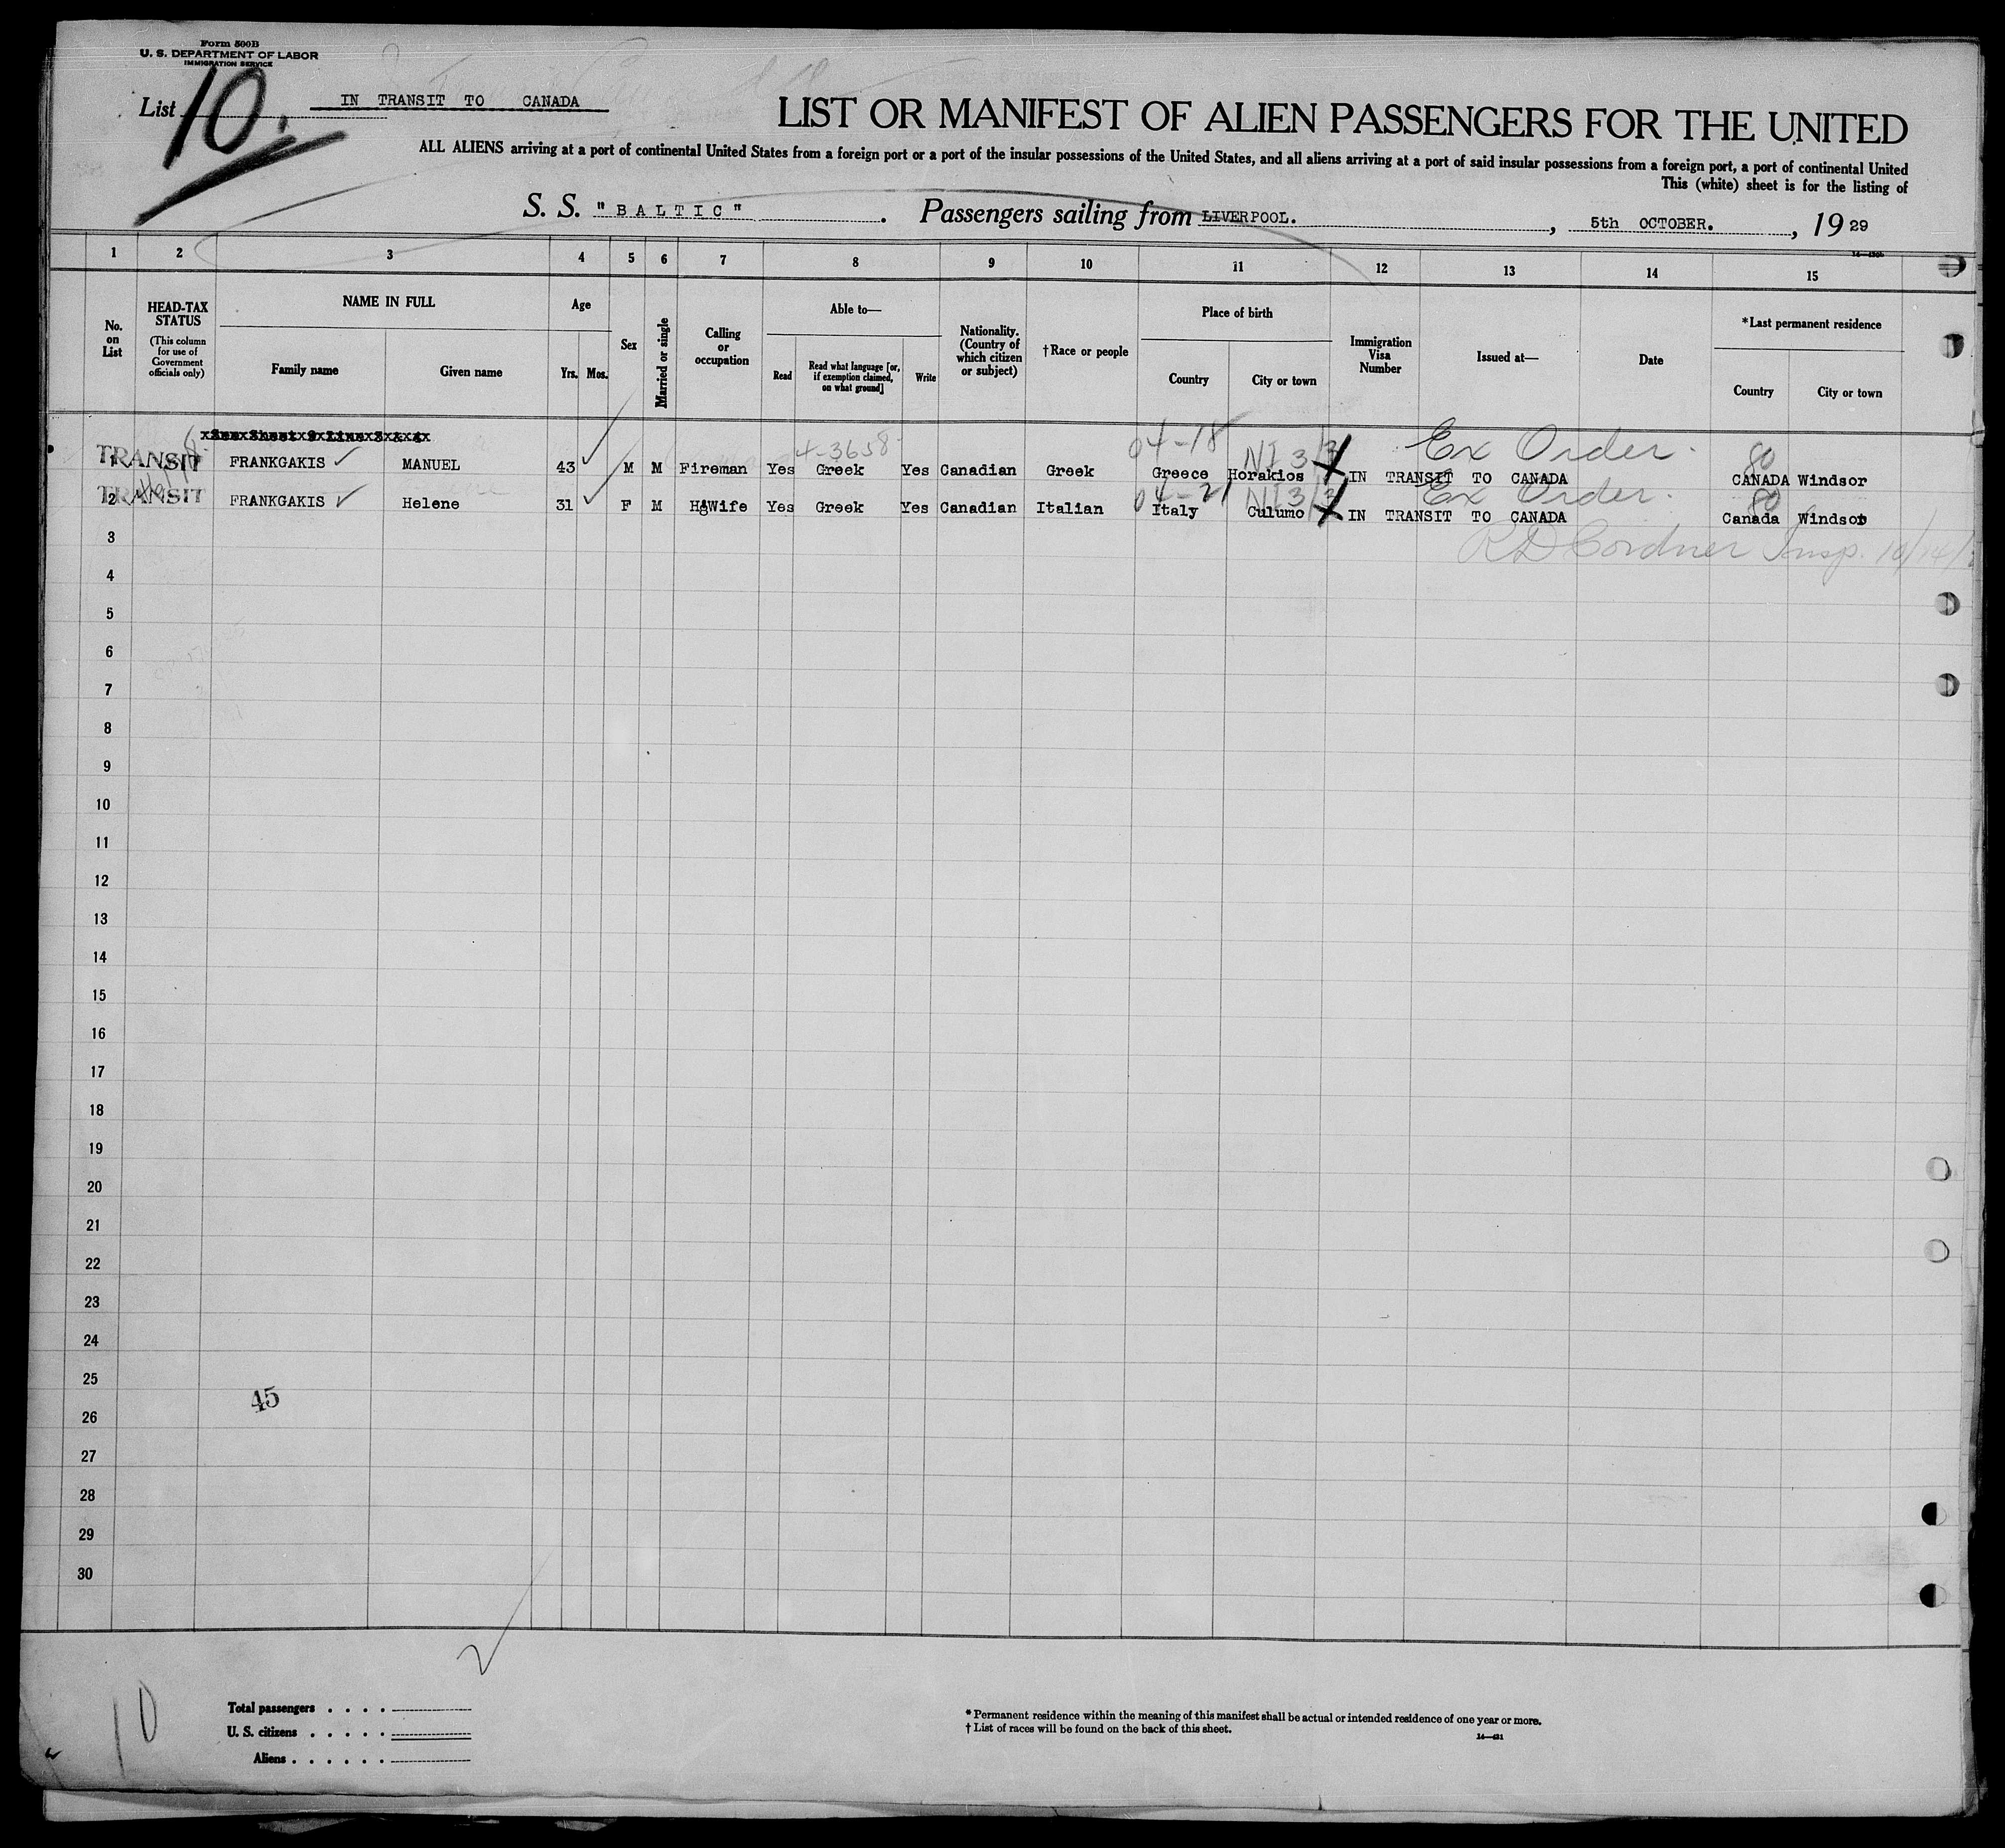 Form 500B
U. S. DEPARTMENT OF LABOR
IMMIGRATION SERVICE
List 10. IN TRANSIT TO CANADA
LIST OR MANIFEST OF ALIEN PASSENGERS FOR THE UNITED
ALL ALIENS arriving at a port of continental United States from a foreign port or a port of the insular possessions of the United States, and all aliens arriving at a port of said insular possessions from a foreign port, a port of continental United
This (white) sheet is for the listing of
S. S. "BALTIC" . Passengers sailing from LIVERPOOL. , 5th OCTOBER. , 19 29
1 2 3 4 5 6 7 8 9 10 11 12 13 14 15
No. on List
HEAD-TAX STATUS
(This column for use of Government officials only)
NAME IN FULL
Family name Given name
Age
Yrs. Mos.
Sex
Married or single
Calling or occupation
Able to—
Read
Read what language [or, if exemption claimed, on what ground]
Write
Nationality. (Country of which citizen or subject)
†Race or people
Place of birth
Country City or town
Immigration Visa Number
Issued at—
Date
*Last permanent residence
Country City or town
4-3658 04-18 NI 3/3 Ex Order. 80
1 TRANSIT FRANKGAKIS MANUEL 43 M M Fireman Yes Greek Yes Canadian Greek Greece Horakios IN TRANSIT TO CANADA CANADA Windsor
04-21 NI 3/3 Ex Order. 80
2 TRANSIT FRANKGAKIS Helene 31 F M HsWife Yes Greek Yes Canadian Italian Italy Culumo IN TRANSIT TO CANADA Canada Windsor
3
RD Cordner Insp. 10/14/
4
5
6
7
8
9
10
11
12
13
14
15
16
17
18
19
20
21
22
23
24
25
45
26
27
28
29
30
2
10
Total passengers . . . .
U. S. citizens . . . . .
Aliens . . . . . .
* Permanent residence within the meaning of this manifest shall be actual or intended residence of one year or more.
† List of races will be found on the back of this sheet.